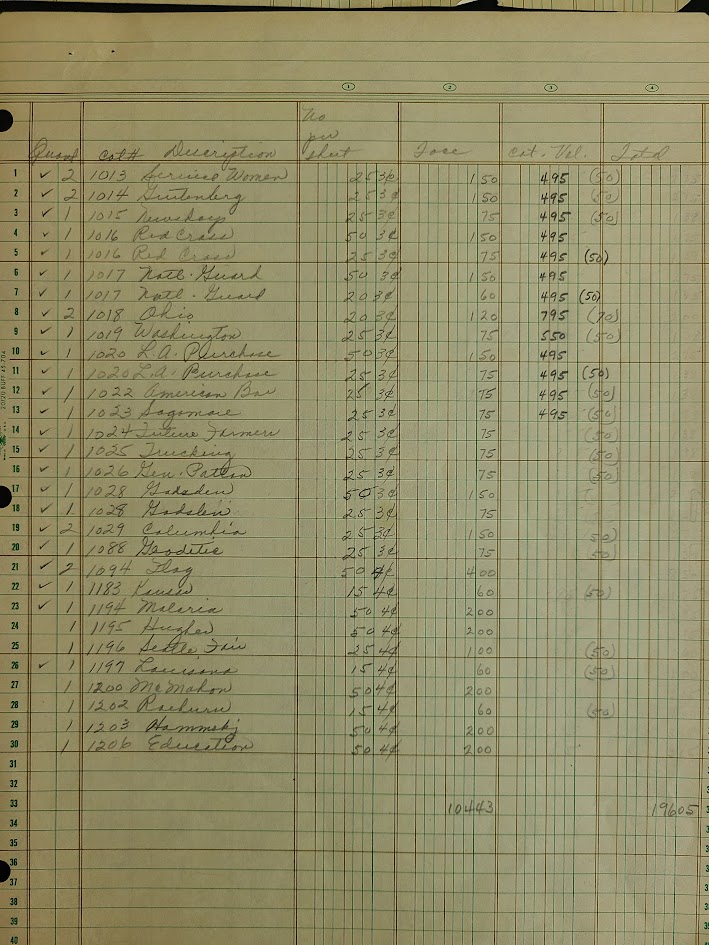 1 2 3 4
No
per
Quant cat# Description sheet Face Cat. Val. Total
1 ✓ 2 1013 Service Women 25 3¢ 1 50 495 (50)
2 ✓ 2 1014 Gutenberg 25 3¢ 1 50 495 (50)
3 ✓ 1 1015 Newsboys 25 3¢ 75 495 (50)
4 ✓ 1 1016 Red Cross 50 3¢ 1 50 495
5 ✓ 1 1016 Red Cross 25 3¢ 75 495 (50)
6 ✓ 1 1017 Natl. Guard 50 3¢ 1 50 495
7 ✓ 1 1017 Natl. Guard 20 3¢ 60 495 (50)
8 ✓ 2 1018 Ohio 20 3¢ 1 20 795 (70)
9 ✓ 1 1019 Washington 25 3¢ 75 550 (50)
10 ✓ 1 1020 L.A. Purchase 50 3¢ 1 50 495
11 ✓ 1 1020 L.A. Purchase 25 3¢ 75 495 (50)
12 ✓ 1 1022 American Bar 25 3¢ 75 495 (50)
13 ✓ 1 1023 Sagamore 25 3¢ 75 495 (50)
14 ✓ 1 1024 Future Farmers 25 3¢ 75 (50)
15 ✓ 1 1025 Trucking 25 3¢ 75 (50)
16 ✓ 1 1026 Gen. Patton 25 3¢ 75 (50)
17 ✓ 1 1028 Gadsden 50 3¢ 1 50
18 ✓ 1 1028 Gadsden 25 3¢ 75
19 ✓ 2 1029 Columbia 25 3¢ 1 50 50)
20 ✓ 1 1088 Geodetic 25 3¢ 75 50)
21 ✓ 2 1094 Flag 50 4¢ 4 00
22 ✓ 1 1183 Kansas 15 4¢ 60 (50)
23 ✓ 1 1194 Malaria 50 4¢ 2 00
24 1 1195 Hughes 50 4¢ 2 00
25 1 1196 Seattle Fair 25 4¢ 1 00 (50)
26 ✓ 1 1197 Louisiana 15 4¢ 60 (50)
27 1 1200 McMahon 50 4¢ 2 00
28 1 1202 Rayburn 15 4¢ 60 (50)
29 1 1203 Hammskj 50 4¢ 2 00
30 1 1206 Education 50 4¢ 2 00
31
32
33 10443 19605
34
35
36
37
38
39
40